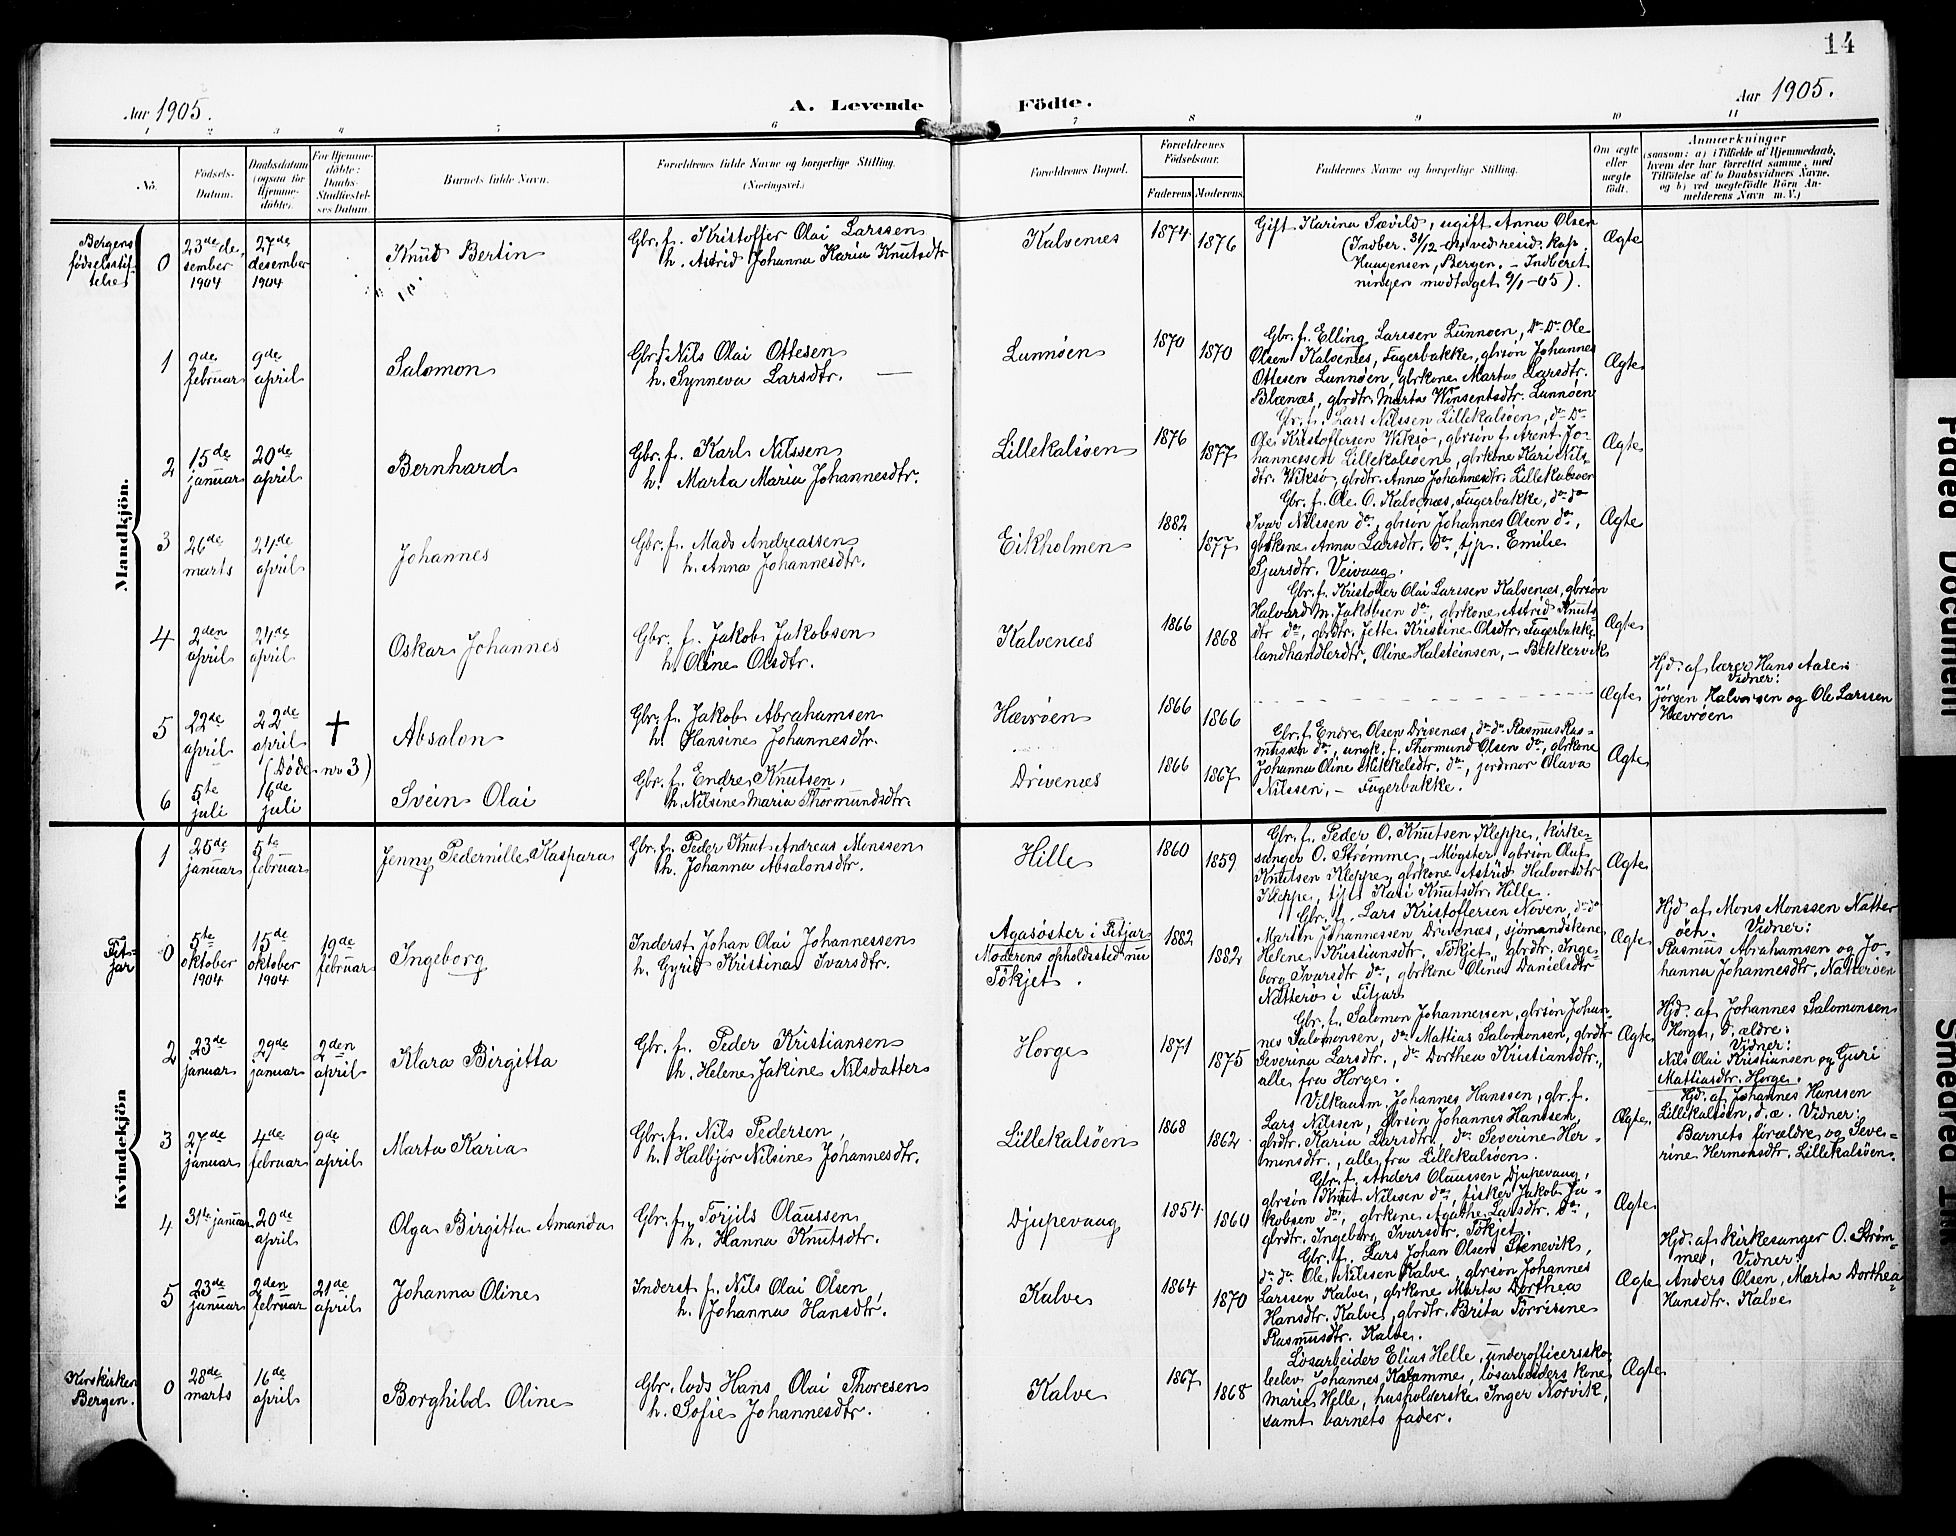 14
Aar 1905.
A. Levende Födte.
Aar 1905.
1 2 3 4 5 6 7 8 9 10 11
No.
Födsels-Datum.
Daabsdatum (ogsaa for Hjemmedöbte).
For Hjemmedöbte: Daabs-Stadfæstelses Datum
Barnets fulde Navn.
Forældrenes fulde Navne og borgerlige Stilling. (Næringsvei.)
Forældrenes Bopæl.
Forældrenes Födselsaar.
Faderens Moderens
Faddernes Navne og borgerlige Stilling.
Om ægte eller uægte födt.
Anmærkninger
(saasom: a) i Tilfælde af Hjemmedaab, hvem der har forrettet samme, med Tilföielse af to Daabsvidners Navne, og b) ved uægtefödte Börn Anmelderens Navn m. V.)
Mandkjön.
Bergens fødselsstiftelse
0
23de desember 1904
27de desember 1904
Knut Bertin
Gbr. f. Kristoffer Olai Larssen
h. Astrid Johanna Karia Knutsdtr
Kalvenes
1874 1876
Gift Karina Sævild, ugift Anna Olsen
(Indber. 31/12 04 ved resid: kap.
Haagensen, Bergen. – Indberet
ningen modtaget 9/1-05).
Ægte
1
9de februar
9de april
Salomon
Gbr. f. Nils Olai Ottesen
h. Synneva Larsdtr.
Lunnøen
1870 1870
Gbr. f. Elling Larssen Lunnøen, do do Ole
Olsen Kalvenes, Fagerbakke, gbrsøn Johannes
Ottesen Lunnøen, gbrkone Marta Larsdtr.
Blænæs, gbrdtr. Marta Winsentsdtr. Lunnøen
Ægte
2
15de januar
20de april
Bernhard
Gbr. f. Karl Nilssen
h. Marta Maria Johannesdtr.
Lillekalsøen
1876 1877
Gbr. f. Lars Nilssen Lillekalsøen, do do
Ole Kristoffersen Wiksø, gbrsøn f. Arent Jo-
hannessen Lillekalsøen, gbrkone Kari Nils-
dtr. Wiksø, gbrdtr. Anna Johannesdtr. Lillekalsøen
Ægte
3
26de marts
24de april
Johannes
Gbr. f. Mads Andreassen
h. Anna Johannesdtr.
Eikholmen
1882 1877
Gbr. f. Ole O. Kalvenæs, Fagerbakke, do do
Ivar Nilssen do, gbrsøn Johannes Olsen do,
gbrkone Anna Larsdtr. do, tjp. Emilie
Sjursdtr. Veivaag.
Ægte
4
2den april
24de april
Oskar Johannes
Gbr. f. Jakob Jakobsen
h. Oline Olsdtr.
Kalvenæs
1866 1868
Gbr. f. Kristoffer Olai Larssen Kalvenæs, gbrsøn
Halvard M. Jakobsen do, gbrkone Astrid Knuts
dtr do, gbrdtr. Jette Kristine Olsdtr. Fagerbakke
landhandlerdtr. Oline Halsteinsen, – Bekkervik
Ægte
5
22de april
22de april
(Døde nr 3)
Absalon
Gbr. f. Jakob Abrahamsen
h. Hansine Johannesdtr.
Hævrøen
1866 1866
Ægte
Hjd. af lærer Hans Aasen
Vidner:
Jørgen Halvorsen og Ole Larssen
Hævrøen
6
5te juli
16de juli
Svein Olai
Gbr. f. Endre Knutsen,
h. Nilsine Maria Thormundsdtr.
Drivenæs
1866 1867
Gbr. f. Endre Olsen Drivenæs, do do Rasmus Ras-
mussen do, ungk. f. Thormund Olsen do, gbrkone
Johanna Oline Mikkelsdtr. do, jordmor Olava
Nilssen, – Fagerbakke.
Ægte
Kvindekjön
1
25de januar
5te februar
Jenny Pedernille Kaspara
Gbr. f. Peder Knut Andreas Monssen
h. Johanna Absalonsdtr.
Hille
1860 1859
Gbr. f. Peder O. Knutsen Kleppe, kirke-
sanger O. Strømme, – Møgster, gbrsøn Oluf
Knutsen Kleppe, gbrkone Astrid Halvorsdtr
Kleppe, tjp. Kari Knutsdtr. Hille.
Ægte
Fit-jar
0
5te oktober 1904
15de oktober 1904
19de februar
Ingeborg
Inderst Johan Olai Johannessen
h. Gyrid Kristina Ivarsdtr.
Agasøster i Fitjar
Moderens opholdssted nu
Tøkjet.
1882 1882
Gbr. f. Lars Kristoffersen Noven, do do
Martin Johannessen Drivenæs, sjømandskone
Helene Kristiansdtr. Tøkjet, gbrdtr. Inge-
borg Ivarsdtr do, gbrkone Olina Danielsdtr
Natterø i Fitjar
Ægte
Hjd af Mons Monssen Natter
öen. Vidner:
Rasmus Abrahamsen og Jo-
hanna Johannesdtr. Natterøen
2
23de januar
29de januar
2den april
Klara Birgitta
Gbr. f. Peder Kristiansen
h. Helene Jakine Nilsdatter
Horge
1871 1875
Gbr. f. Salomon Johannessen, gbrsøn Johan-
nes Salomonsen, do Mattias Salomonsen, gbrdtr
Severina Larsdtr., do Dorthea Kristiansdtr.,
alle fra Horge.
Ægte
Hjd. af Johannes Salomonsen
Horge, d. ældre:
Vidner:
Nils Olai Kristiansen og Guri
Mattiasdtr. Horge.
3
27de januar
4de februar
9de april
Marta Karia
Gbr. f. Nils Pedersen,
h. Halbjør Nilsine Johannesdtr.
Lillekalsøen
1868 1862
Vilkaarm. Johannes Hanssen, gbr. f.
Lars Nilssen, gbrsøn Johannes Hanssen,
gbrdtr. Karia Larsdtr., do Severine Her-
monsdtr., alle fra Lillekalsøen.
Ægte
Hjd. af Johannes Hanssen
Lillekalsøen, d. æ. Vidner:
Barnets forældre og Seve-
rine Hermonsdtr. Lillekalsøen.
4
31te januar
20de april
Olga Birgitta Amanda
Gbr. f. Torjils Olaussen
h. Hanna Knutsdtr.
Djupevaag
1854 1860
Gbr. f. Anders Olaussen Djupevaag,
gbrsøn Knut Nilssen do, fisker Jakob Ja-
kobsen do, gbrkone Agathe Larsdtr. Do,
gbrdtr. Ingeborg Ivarsdtr. Tøkjet.
Ægte
5
23de januar
2den februar
21de april
Johanna Oline
Inderst f. Nils Olai Olsen,
h. Johanna Hansdtr.
Kalve
1864 1870
Gbr. f. Lars Johan Olsen Stenevik,
do do Ole Nilssen Kalve, gbrsøn Johannes
Larssen Kalve, gbrkone Marta Dorthea
Hansdtr. Kalve, gbrdtr. Brita Torrisine
Rasmusdtr. Kalve.
Ægte
Hjd. af kirkesanger O. Strøm-
me, Vidner:
Anders Olsen, Marta Dorthea
Hansdtr. Kalve
Korskirken Bergen.
0
28de marts
16de april
Borghild Oline
Gbr. lods Hans Olai Thoresen
h. Sofie Johannesdtr.
Kalve
1867 1868
Løsarbeider Elias Helle, underofficersskole
elev Johannes Kalamme, løsarbeiders kone
Marie Helle, husholderske Inger Norvik,
samt barnets fader.
Ægte
Faded Document
Smeared Ink